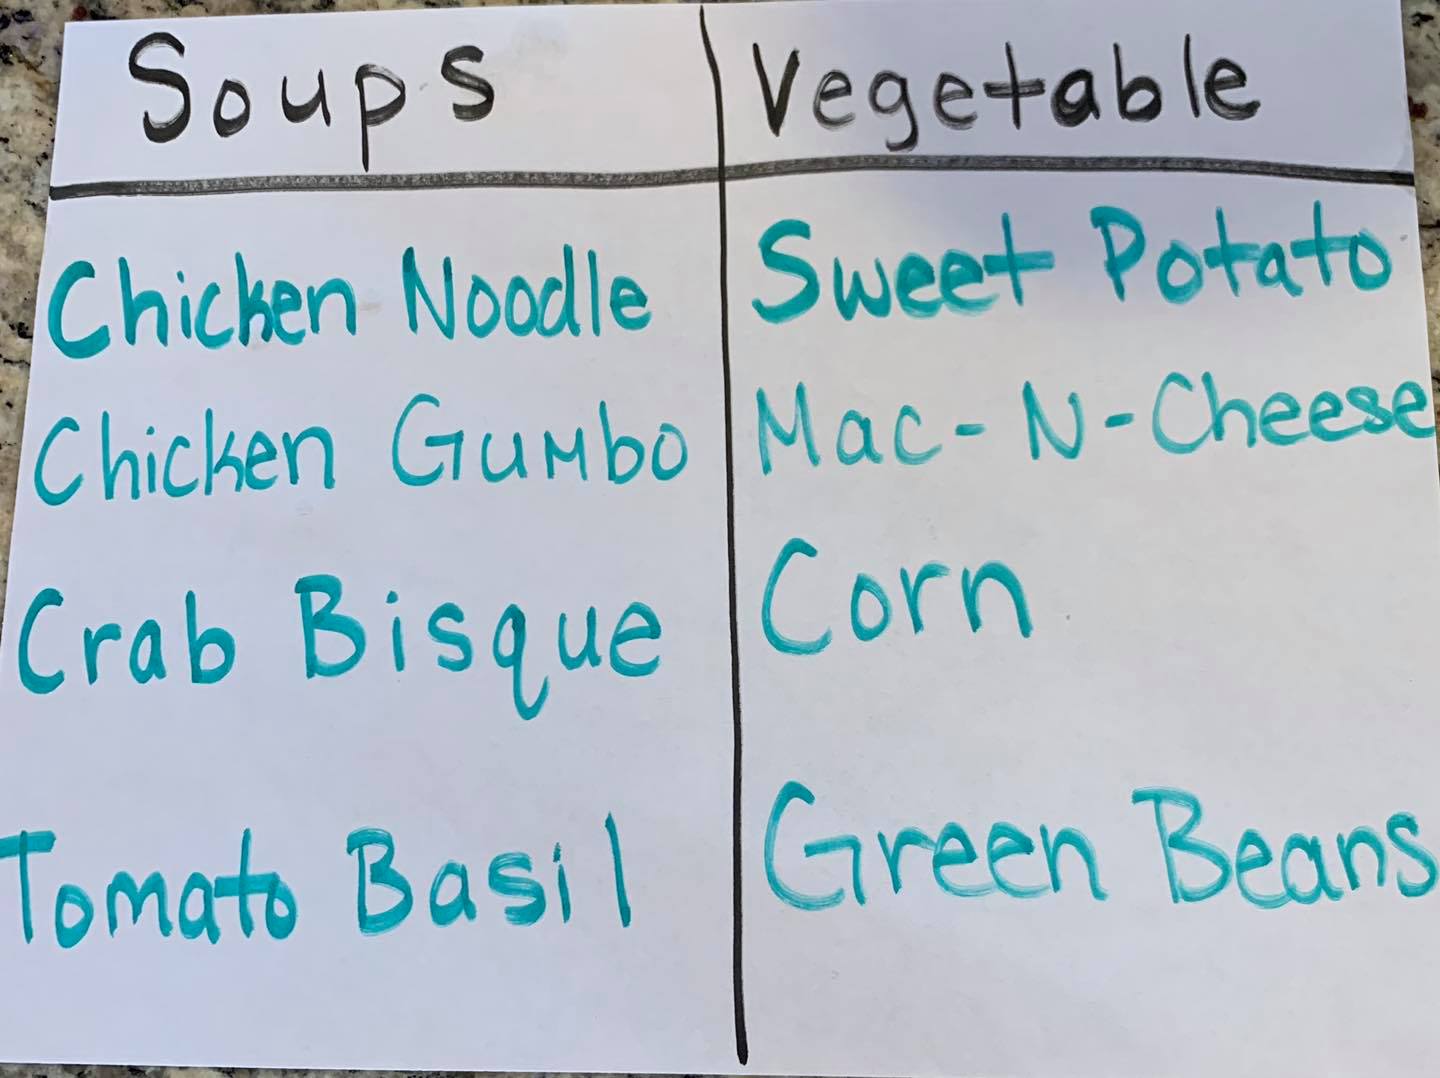 Soups
Vegetable
Chicken Noodle
Sweet Potato
Chicken Gumbo
Mac-N-Cheese
Crab Bisque
Corn
Tomato Basil
Green Beans